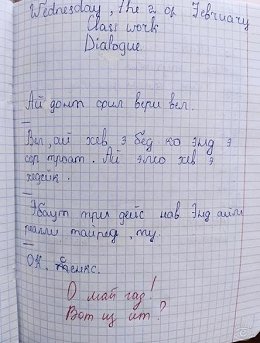 Wednesday, the 2 of February
Class work
Dialogue.
Ай донт фил вери вел.
Вел, ай хев э бед ко энд э
сор троат. Ай элсо хев э
хедейк.
Эбаут три дейс нав. Энд айм
риалли тайред, ту.
ОК. Тенкс.
О май гад!
Вот из ит?